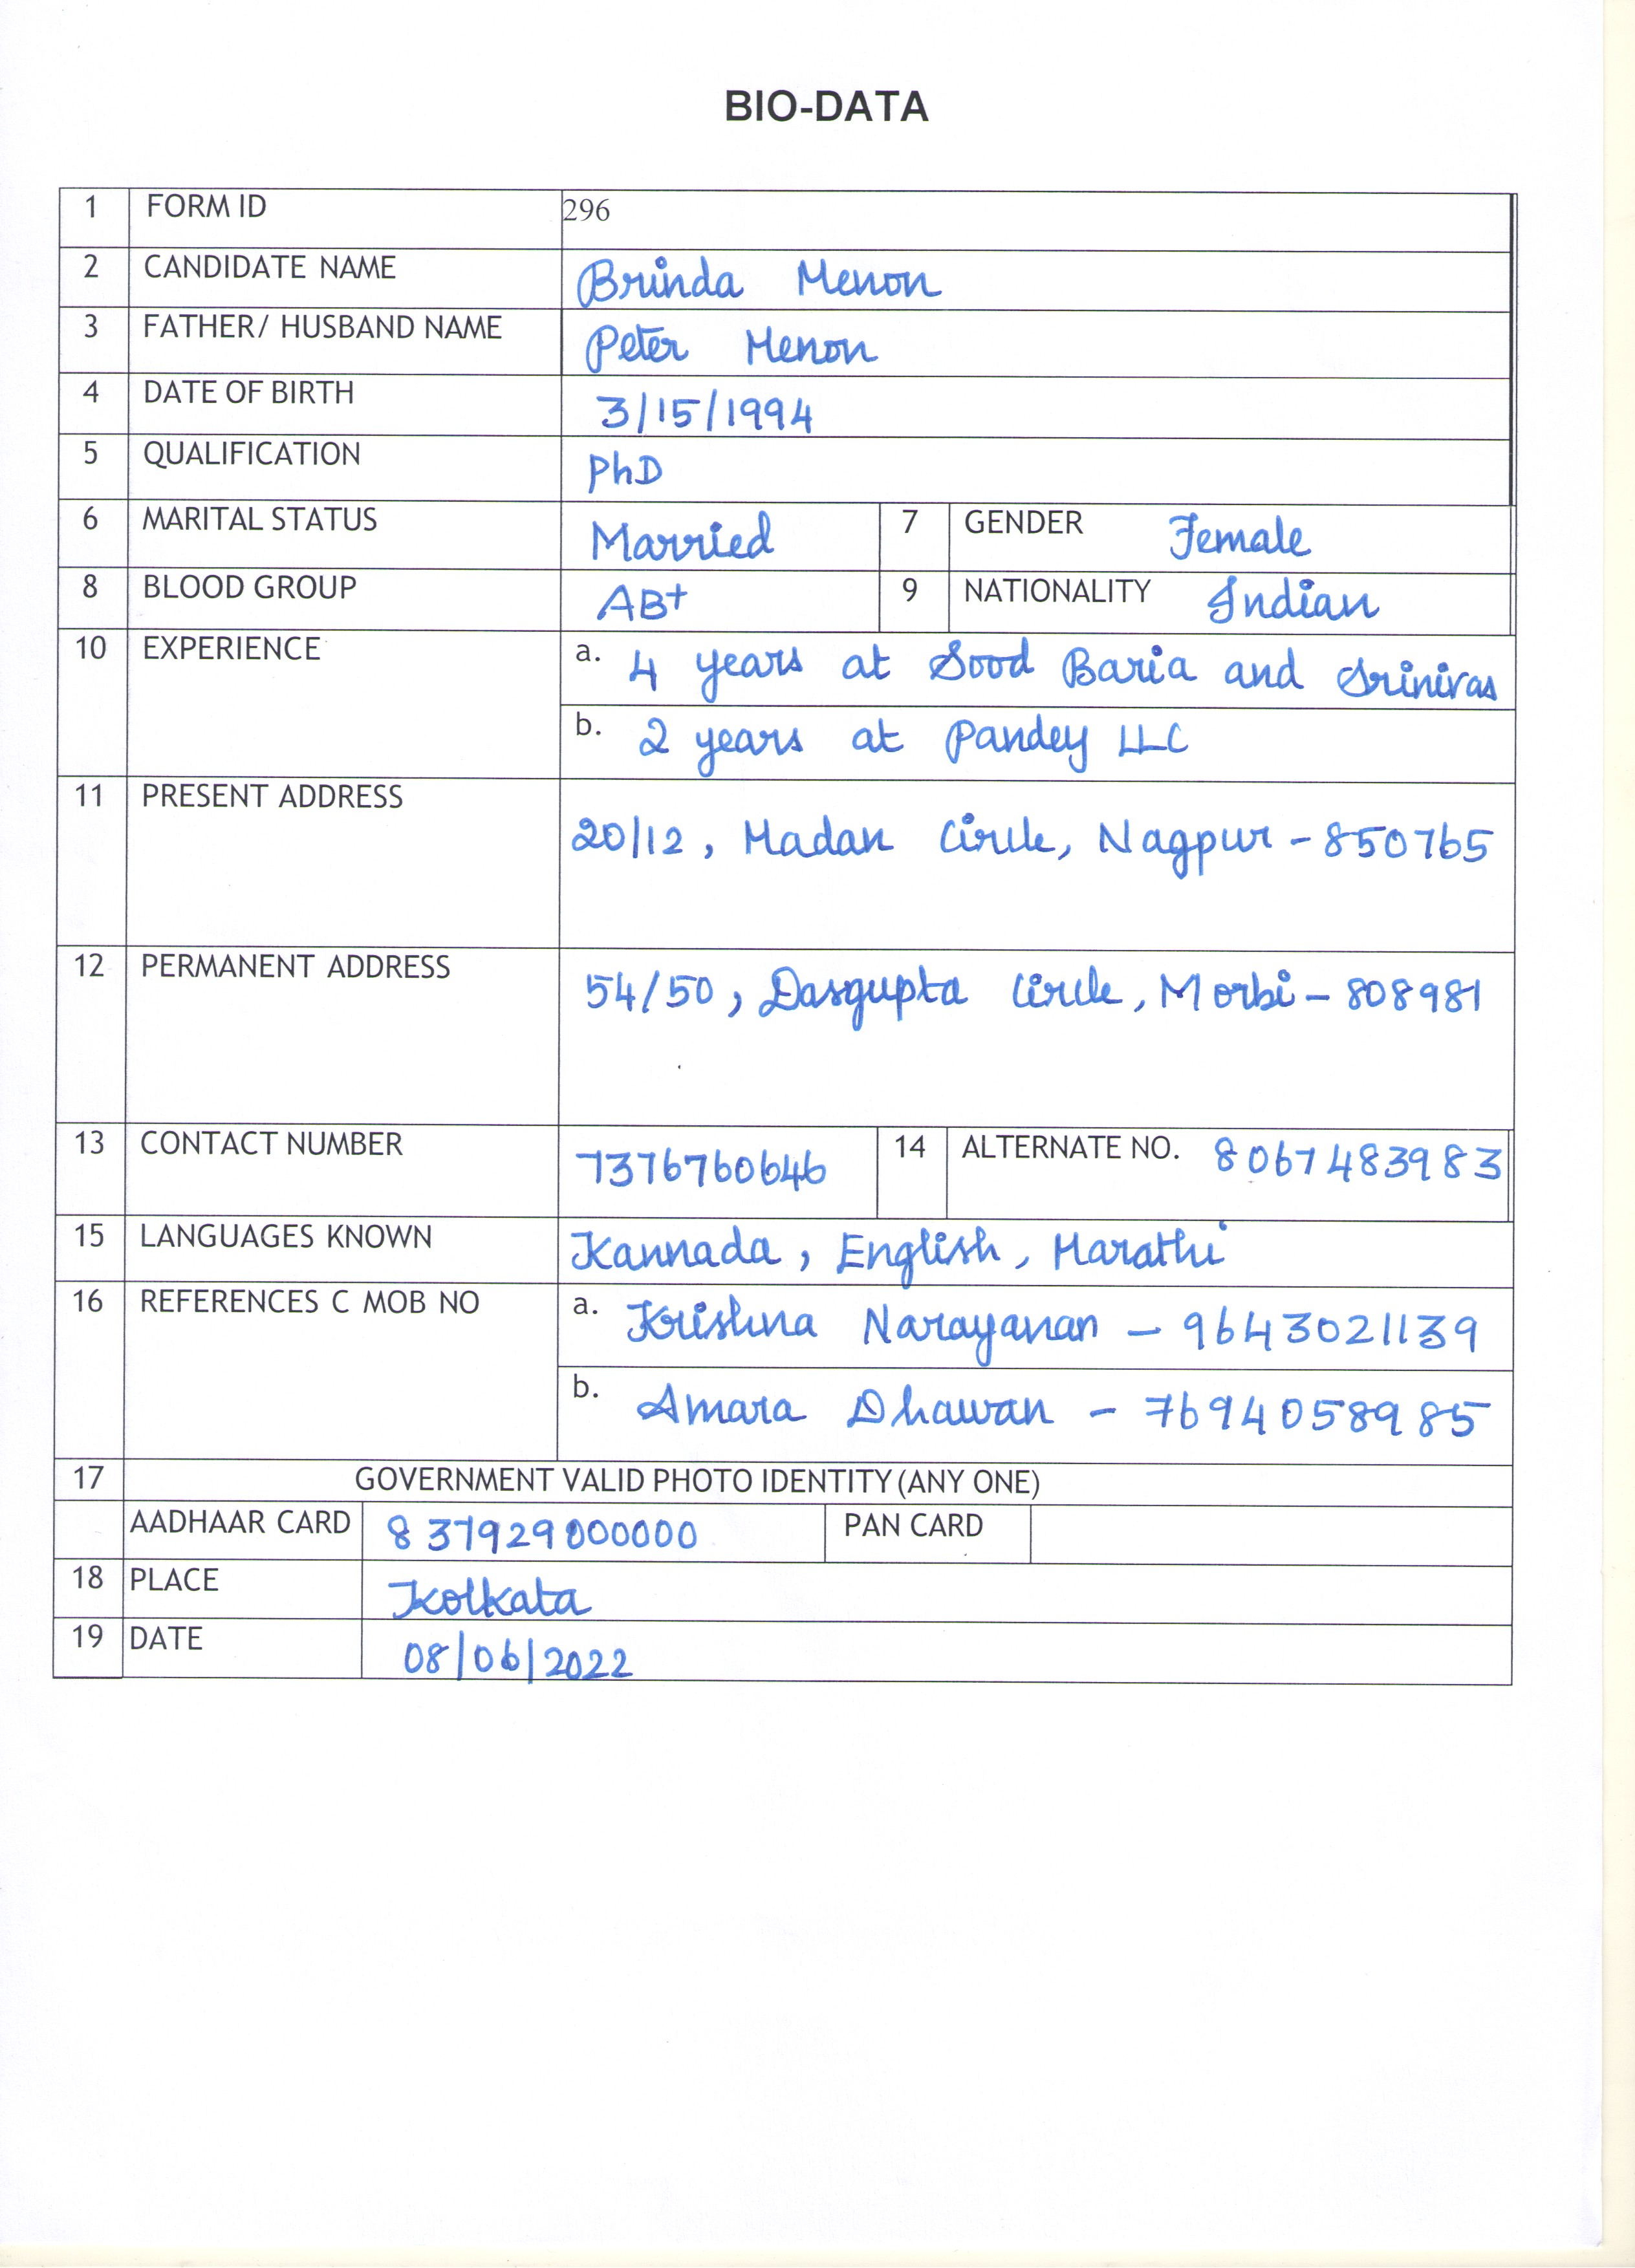 BIO-DATA
1 FORM ID 296
2 CANDIDATE NAME Brinda Menon
3 FATHER/ HUSBAND NAME Peter Menon
4 DATE OF BIRTH 3/15/1994
5 QUALIFICATION PhD
6 MARITAL STATUS Married 7 GENDER Female
8 BLOOD GROUP AB+ 9 NATIONALITY Indian
10 EXPERIENCE a. 4 years at Sood Baria and Srinivas
b. 2 years at Pandey LLC
11 PRESENT ADDRESS
20/12, Madan Circle, Nagpur - 850765
12 PERMANENT ADDRESS 54/50, Dasgupta Circle, Morbi - 808981
13 CONTACT NUMBER 7376760646 14 ALTERNATE NO. 8067483983
15 LANGUAGES KNOWN Kannada, English, Marathi
16 REFERENCES C MOB NO a. Krishna Narayanan - 9643021139
b. Amara Dhawan - 7694058985
17 GOVERNMENT VALID PHOTO IDENTITY (ANY ONE)
AADHAAR CARD 837929000000 PAN CARD
18 PLACE Kolkata
19 DATE 08/06/2022